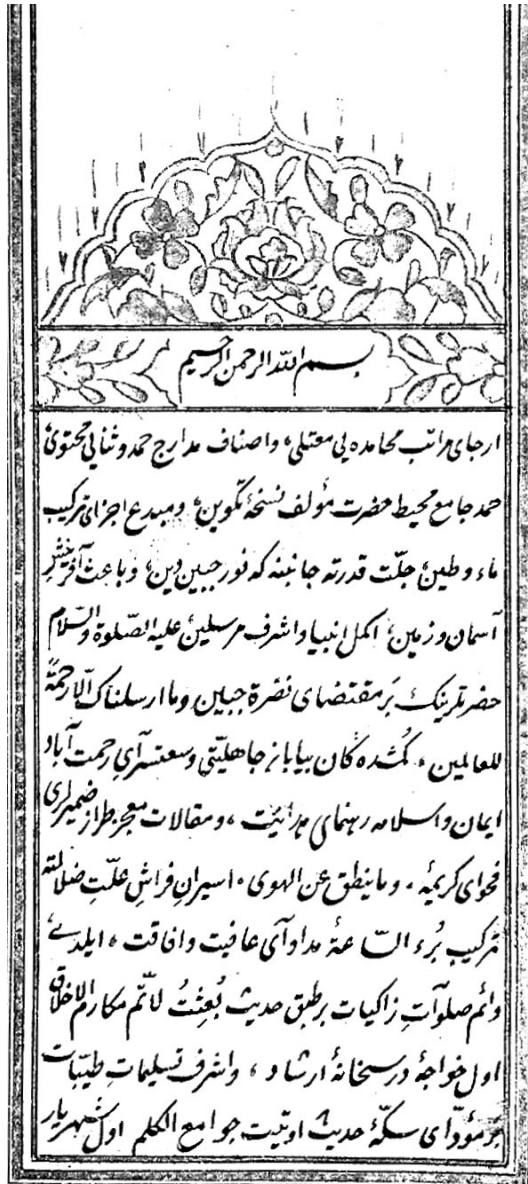 بسم الله الرحمن الرحيم
ارجای مراتب محامده یی معتلی، و اصناف مدارج حمد و ثنایی محتوی
حمد جامع محیط حضرت مؤلف نسخهٔ تکوین، و مبدع اجزای ترکیب
ماء و طین جلّت قدرته جانبنه که نور جبین دین، و باعث آفرینش
آسمان و زمین، اکمل انبیا و اشرف مرسلین علیه الصّلوة والسّلام
حضرتلرینک بر مقتضای نضرة جبین وما ارسلناک الّا رحمةً
للعالمین، کمشده کان بیابان جاهلیّتی وسعتسرآی رحمت آباد
ایمان و اسلامه رهنمای هدایت، و مقالات معجز طراز ضمیرلری
فحوای کریمهٔ، وما ینطق عن الهوی، اسیران فراش علّت ضلالته
ترکیب بُرء السّاعهٔ مداوآی عافیت و افاقت، ایلدی
واتم صلوآتِ زاکیات بر طبق حدیث بُعِثْتُ لأتّم مکارم الاخلاق
اول خواجهٔ درسخانهٔ ارشاد، و اشرف تسلیمات طیّبات
بر مؤدّای سکّهٔ حدیث اوتیت جوامع الکلم اول شهریار